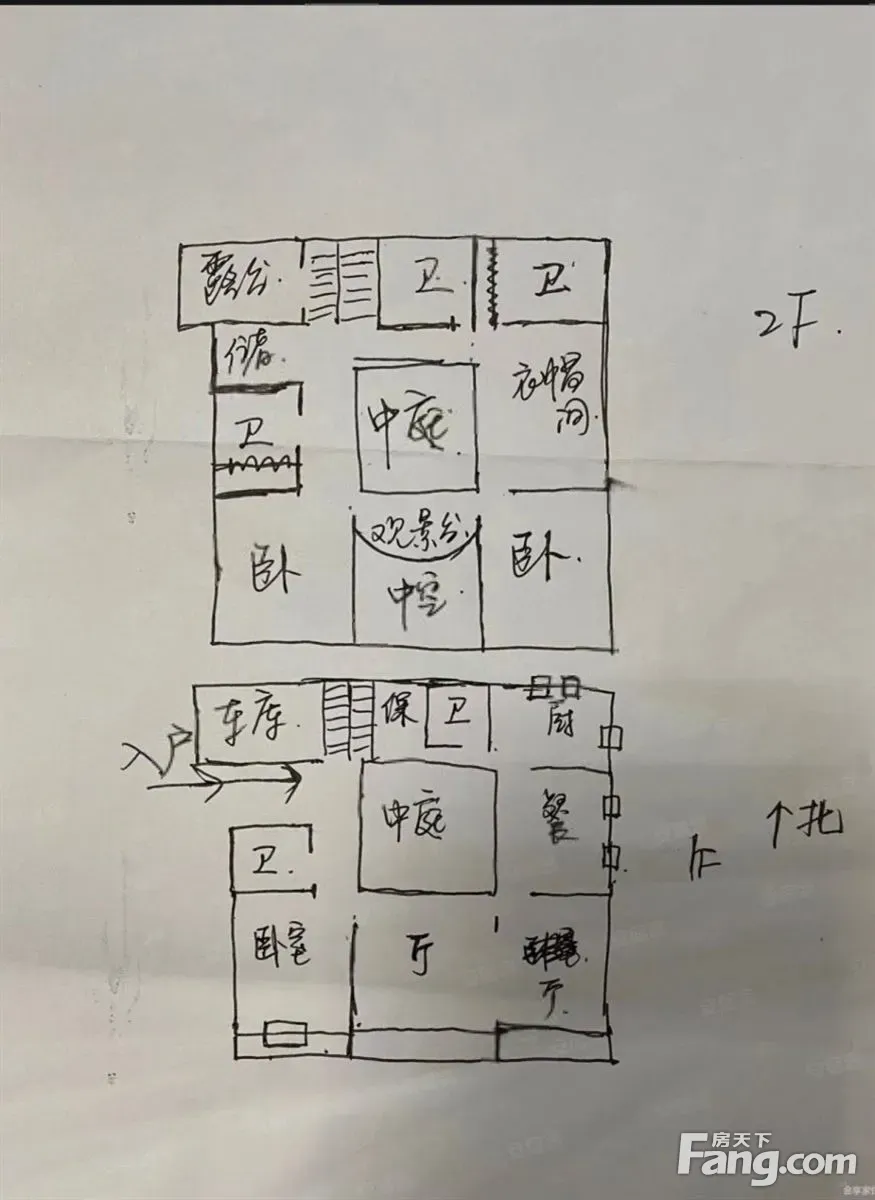 露台.
卫.
卫.
2F.
储.
衣帽
间.
中庭.
卫
观景台.
卧
卧.
中空.
车库.
保
卫
厨
入户
中庭
餐
↑北
1F
卫.
卧室
厅
厅.
房天下
Fang.com